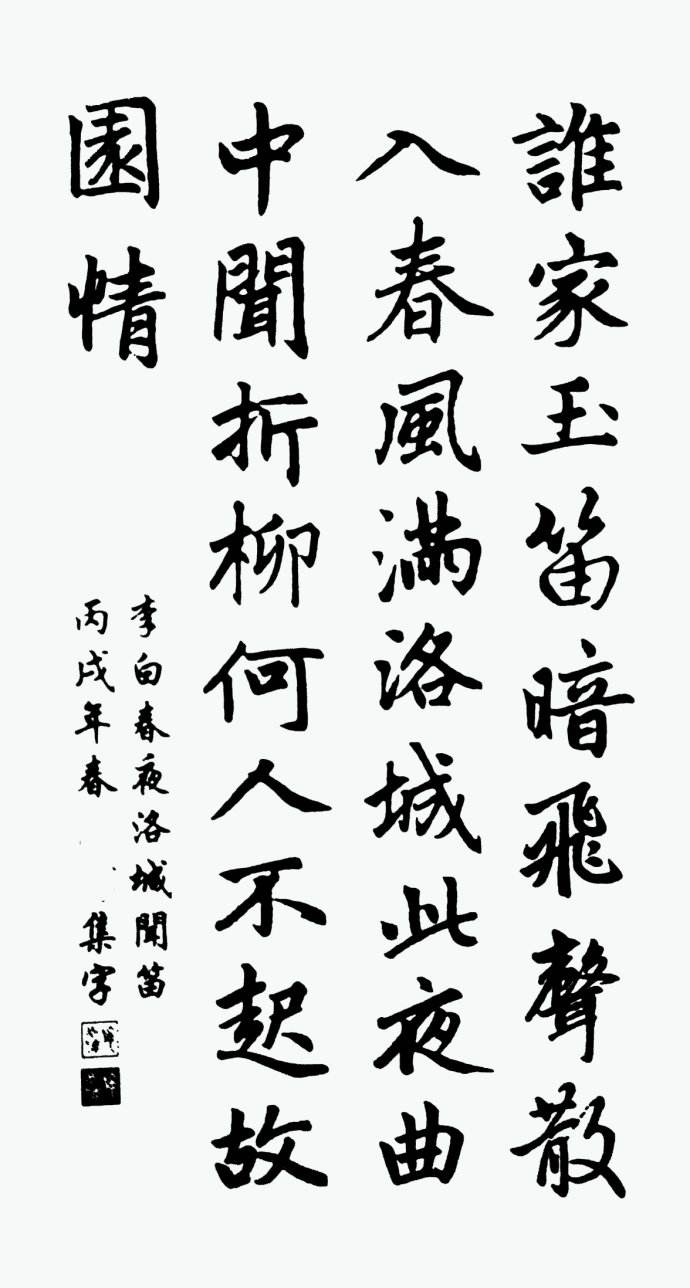 誰家玉笛暗飛聲散
入春風满洛城此夜曲
中聞折柳何人不起故
園情
李白春夜洛城聞笛
丙戌年春 集字